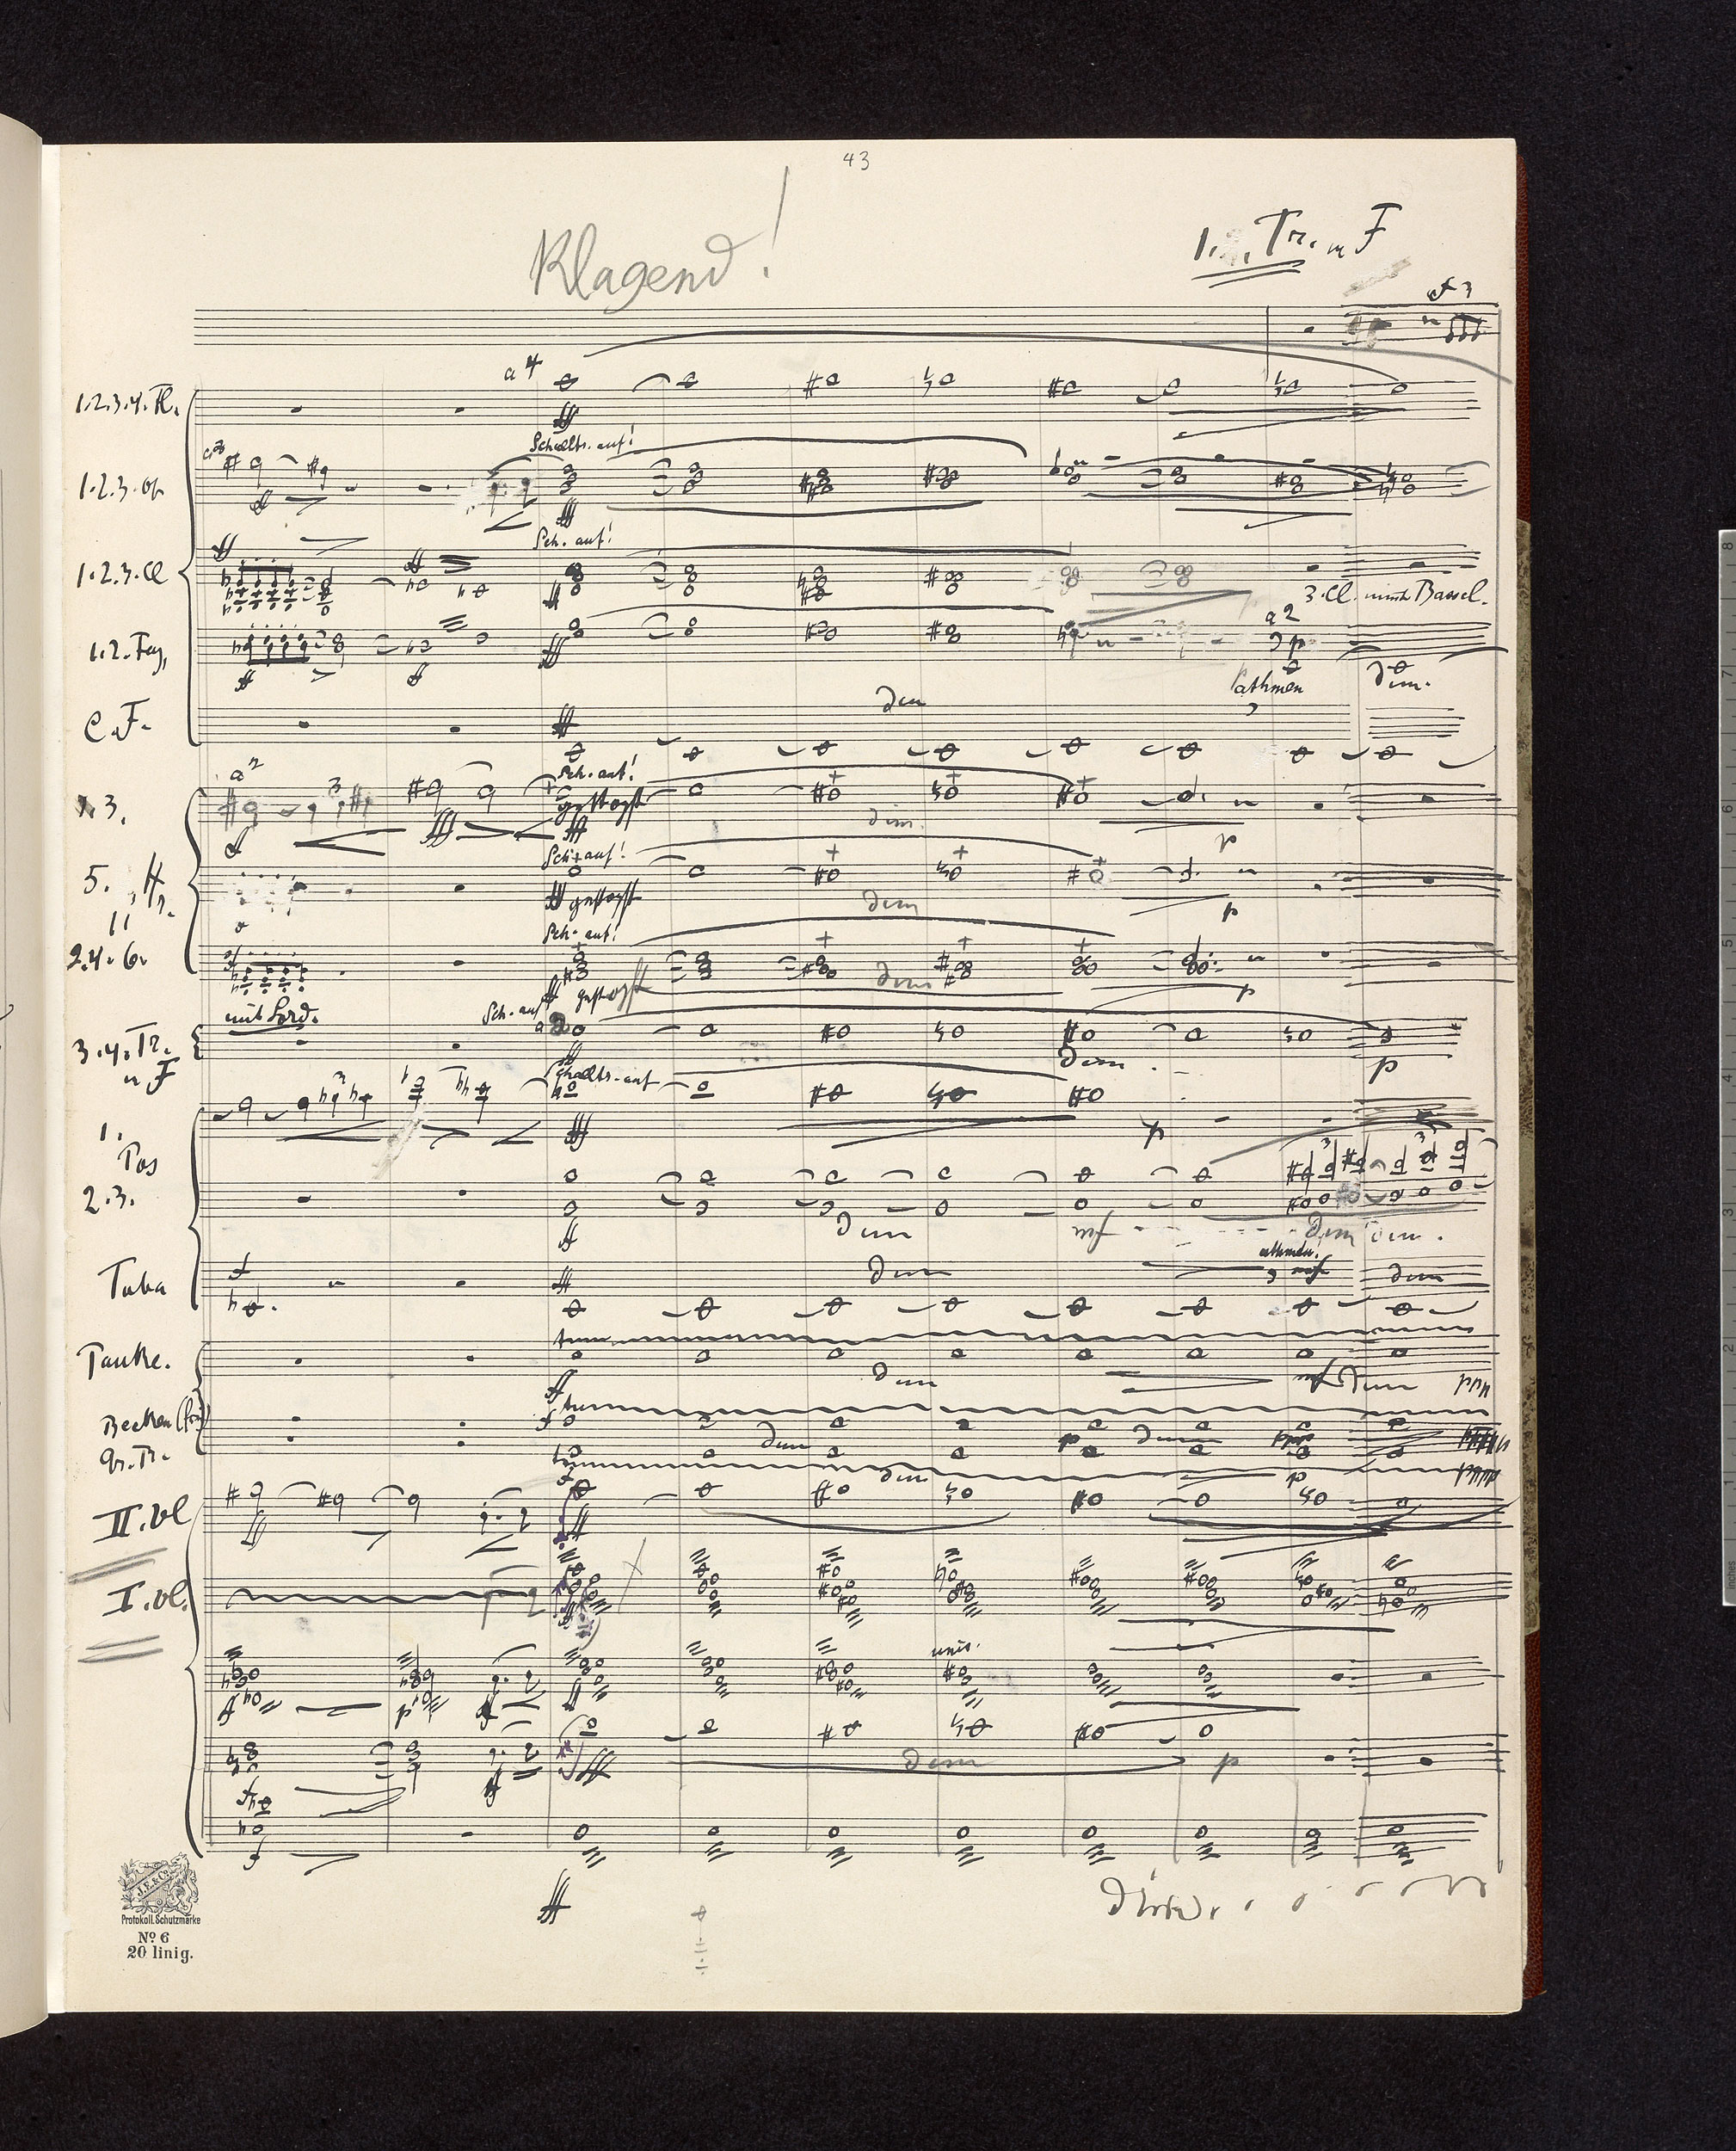 43
Klagend!
1. Tr. in F
a 4
1.2.3.4. Fl.
ff
Schalltr. auf!
1.2.3. Ob
ff
fff
Sch. auf!
1.2.3. Cl
ff
ff
3. Cl. nimmt Bassel.
a 2
1.2. Fag.
ff
p
athmen
dim.
C. F.
fff
dim
a 2
Sch. auf!
3.
gestopft
fff
fff
dim.
p
Sch. auf!
5.
fff gestopft
dim
p
Sch. auf!
2.4.6.
gestopft
dim
p
mit Sord.
Sch. auf
a 2
3.4. Tr.
in F
dim
p
Schalltr. auf
1.
fff
p
Pos
2.3.
ff
dim
mf
dim dim.
athmen
Tuba
f
fff
dim
dim
Pauke.
ff
dim
mf dim
ppp
Becken (frei)
f
dim
p
dim
ppp
Gr. Tr.
dim
p
pppp
II. Vl
ff
fff
I. Vl.
unis.
f
p
ff
fff
dim
p
f
fff
J.E. & Co.
Protokoll. Schutzmarke
No. 6
20 linig.